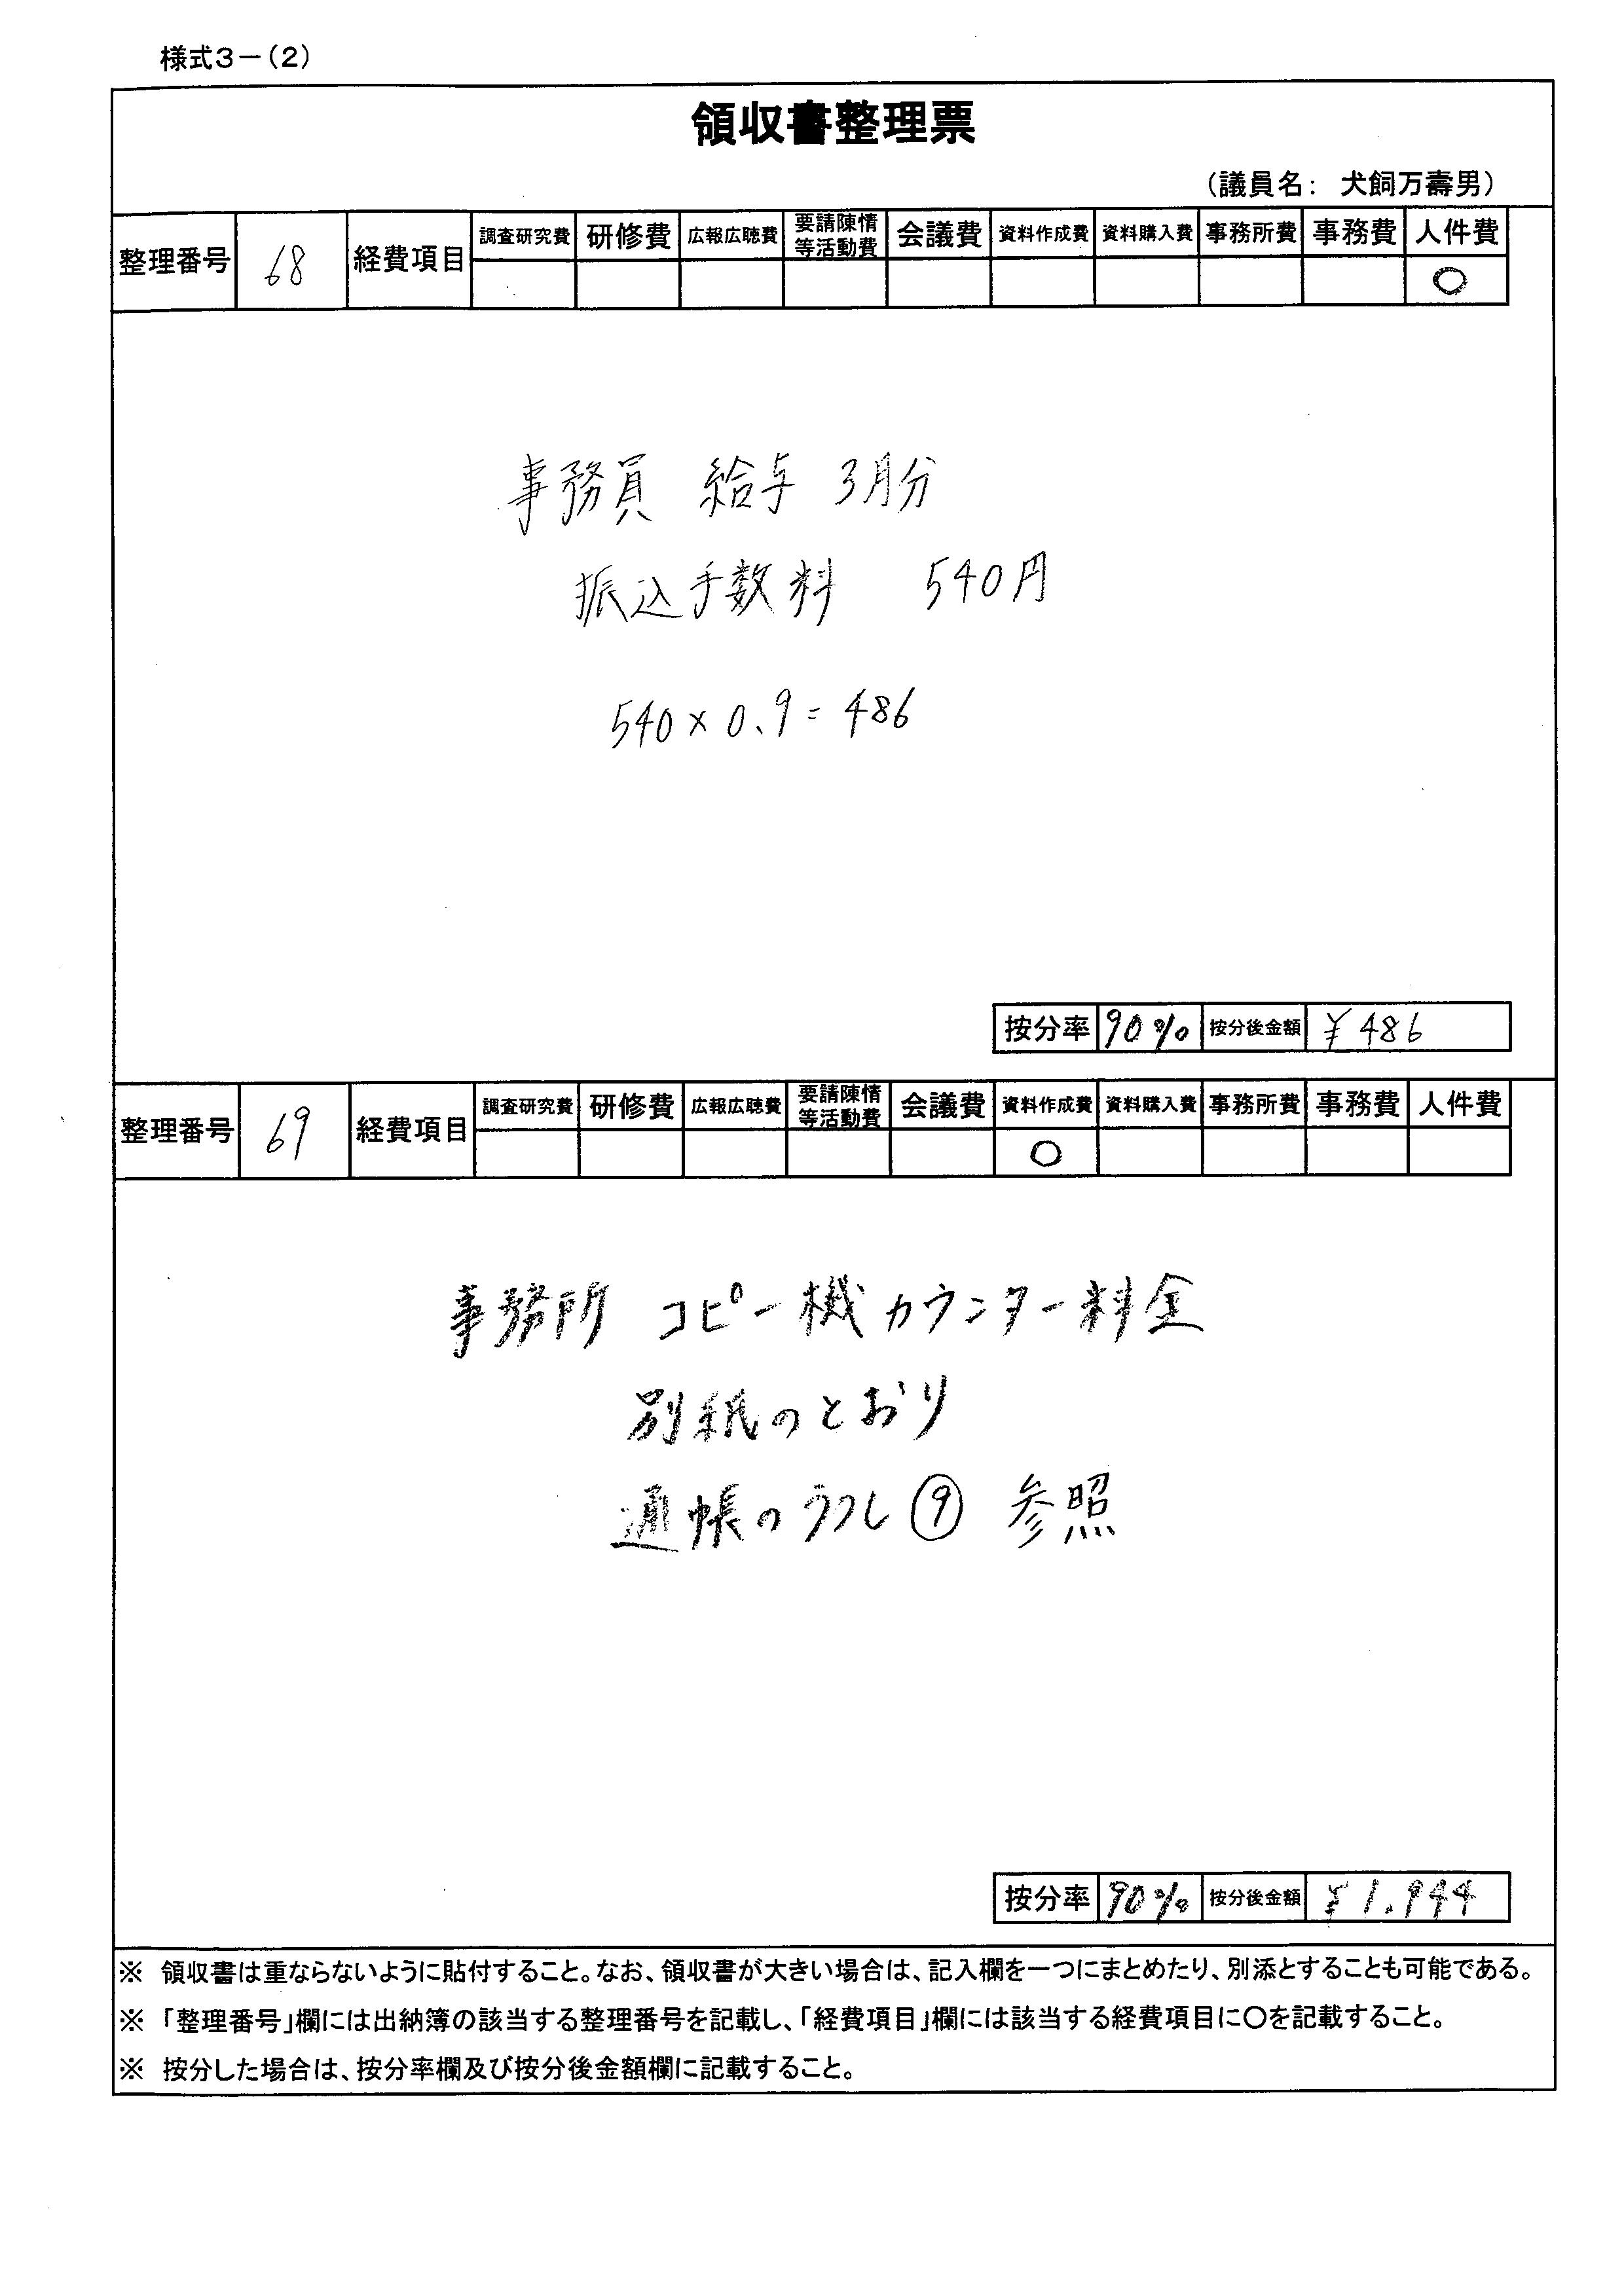 様式3-(2)
領収書整理票
(議員名: 犬飼万壽男)
整理番号 68 経費項目 調査研究費 研修費 広報広聴費 要請陳情等活動費 会議費 資料作成費 資料購入費 事務所費 事務費 人件費
○
事務員 給与 3月分
振込手数料 540円
540×0.9=486
按分率 90% 按分後金額 ¥486
整理番号 69 経費項目 調査研究費 研修費 広報広聴費 要請陳情等活動費 会議費 資料作成費 資料購入費 事務所費 事務費 人件費
○
事務所 コピー機カウンター料金
別紙のとおり
通帳のうつし⑨ 参照
按分率 90% 按分後金額 ¥1,944
※ 領収書は重ならないように貼付すること。なお、領収書が大きい場合は、記入欄を一つにまとめたり、別添とすることも可能である。
※ 「整理番号」欄には出納簿の該当する整理番号を記載し、「経費項目」欄には該当する経費項目に○を記載すること。
※ 按分した場合は、按分率欄及び按分後金額欄に記載すること。